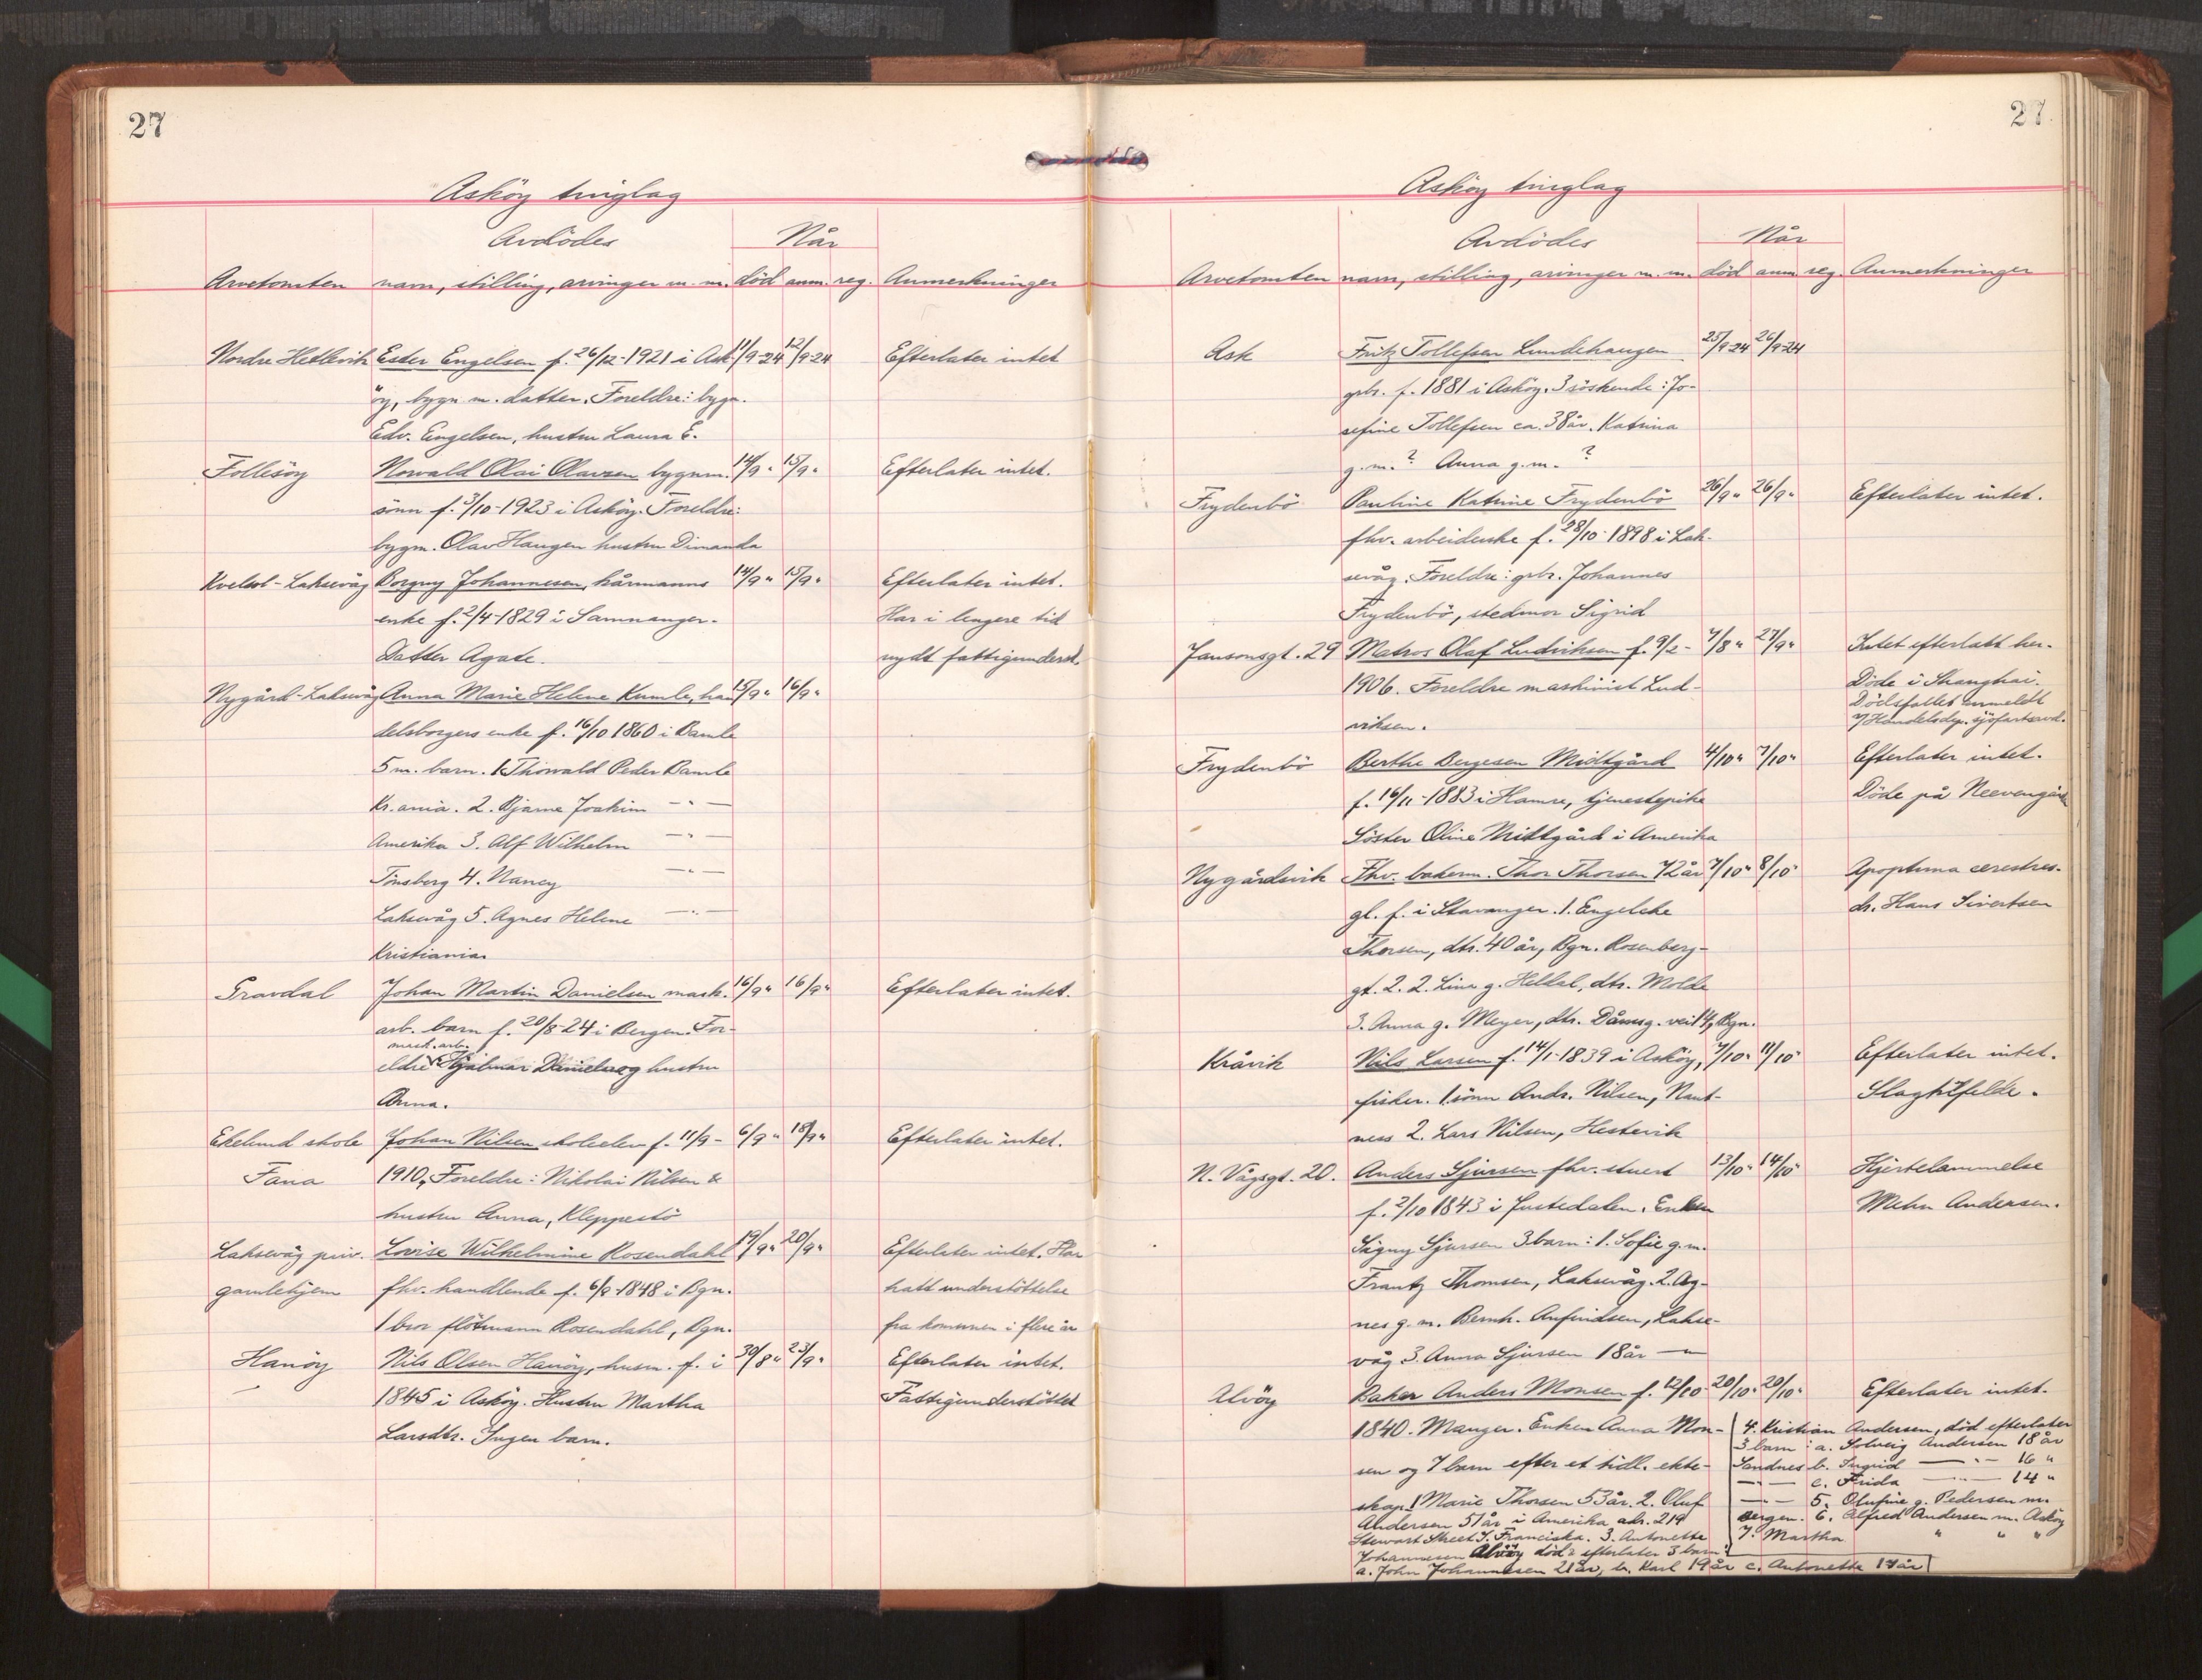 27
Asköy tinglag
Avdödes Når
Arvetomten navn, stilling, arvinger m. m. död anm. reg. Anmerkninger
Nordre Hetlevik Ester Engelsen f. 26/12-1921 i Ask- 11/9-24 12/9-24 Efterlater intet
öy, bygn. m. datter. Foreldre: bygn.
Edv. Engelsen, hustru Laura E.
Follesöy Norvald Olai Olavsen bygnm. 14/9" 15/9" Efterlater intet.
sönn f. 3/10-1923 i Asköy. Foreldre:
bygm. Olav Haugen hustru Dimanda
Laksevåg Borgny Johannesen, kårmanns 14/9" 15/9" Efterlater intet.
enke f. 2/4-1829 i Samnanger. Har i lengere tid
Datter Agate. nydt fattigunderst.
Nygård-Laksevåg Anna Marie Helene Kumle, han- 15/9" 16/9"
delsborgers enke f. 16/10 1860 i Bamle
5 m. barn. 1. Thorvald Peder Bamle
Kr.ania. 2. Bjarne Joakim —"—
Amerika 3. Alf Wilhelm —"—
Tönsberg 4. Nancy —"—
Laksevåg 5. Agnes Helene —"—
Kristiania.
Gravdal Johan Martin Danielsen mask. 16/9" 16/9" Efterlater intet.
arb. barn f. 20/8-24 i Bergen. For-
mask. arb.
eldre Hjalmar Danielsen og hustru
Anna.
Ekelund skole Johan Nilsen skoleelev f. 11/9- 6/9" 18/9" Efterlater intet.
Fana 1910. Foreldre: Nikolai Nilsen &
hustru Anna, Kleppestö
Laksevåg priv. Lovise Wilhelmine Rosendahl 19/9" 20/9" Efterlater intet. Har
gamlehjem fhv. handlende f. 6/8-1848 i Bgn. hatt understöttelse
1 bror flötmann Rosendahl, Bgn. fra komunen i flere år
Hanöy Nils Olsen Hanöy, husm. f. i 30/8" 23/9" Efterlater intet.
1845 i Asköy. Hustru Martha Fattigunderstöttet
Larsdtr. Ingen barn.
27
Asköy tinglag
Avdödes Når
Arvetomten navn, stilling, arvinger m. m. död anm. reg. Anmerkninger
Ask Fritz Tollefsen Lundehaugen 25/9-24 26/9-24
grbr. f. 1881 i Asköy. 3 söskende: Jo-
sefine Tollefsen ca. 38 år. Katrina
g.m. ? Anna g.m. ?
Frydenbö Pauline Katrine Frydenbö 26/9" 26/9" Efterlater intet.
fhv. arbeiderske f. 28/10-1898 i Lak-
sevåg. Foreldre: grbr. Johannes
Frydenbö, stedmor Sigrid
Jansonsgt. 29 Matros Olaf Ludviksen f. 9/2- 7/8" 27/9" Intet efterlatt her.
1906. Foreldre maskinist Lud- Döde i Shanghai.
viksen. Dödsfallet anmeldt
Handelsdep. sjöfartsavd.
Frydenbö Berthe Bergesen Midtgård 4/10" 7/10" Efterlater intet.
f. 16/11-1883 i Hamre, tjenestepike Döde på Neevengården
Söster Oline Midtgård i Amerika
Nygårdsvik Fhv. bakerm. Thor Thorsen 72 år 7/10" 8/10" Apoptima cerestres.
gl. f. i Stavanger. 1. Engelcke dr. Hans Sivertsen
Thorsen, dtr. 40 år, Bgn. Rosenberg-
gt. 2. 2. Line g. Helldal, dtr. Molde
3. Anna g. Meyer, dtr. Dåmsg. vei 14, Bgn.
Kråvik Nils Larsen f. 14/1-1839 i Asköy, 7/10" 11/10" Efterlater intet.
fisker. 1. sönn Andr. Nilsen, Naut- Slagtilfelde.
nes 2. Lars Nilsen, Hestevik
N. Vågsgt. 20. Anders Sjursen fhv. stuert 13/10" 14/10" Hjertelammelse
f. 2/10 1843 i Justedalen. Enken Mehn Andersen.
Signy Sjursen 3 barn: 1. Sofie g.m.
Frantz Thomsen, Laksevåg. 2. Ag-
nes g. m. Bernh. Anfindsen, Lakse-
våg 3. Anna Sjursen 18 år —"
Alvöy Baker Anders Monsen f. 12/10- 20/10" 20/10" Efterlater intet.
1840. Manger. Enken Anna Mon- 4. Kristian Andersen, död efterlater
3 barn: a. Solveig Andersen 18 år
sen og 7 barn efter et tidl. ekte- Sandnes b. Ingrid —"— 16 "
—"— c. Frida —"— 14 "
skap. 1 Marie Thorsen 53 år. 2. Oluf —"— 5. Olufine g. Pedersen m.
Andersen 51 år i Amerika adr. 219 Bergen. 6. Alfred Andersen m. Asköy
Stewart Street S. Franciska. 3. Antonette 7. Martha " " "
Johannesen Alvöy död: efterlater 3 barn:
a. John Johannesen 21 år, b. Karl 19 år c. Antonette 17 år